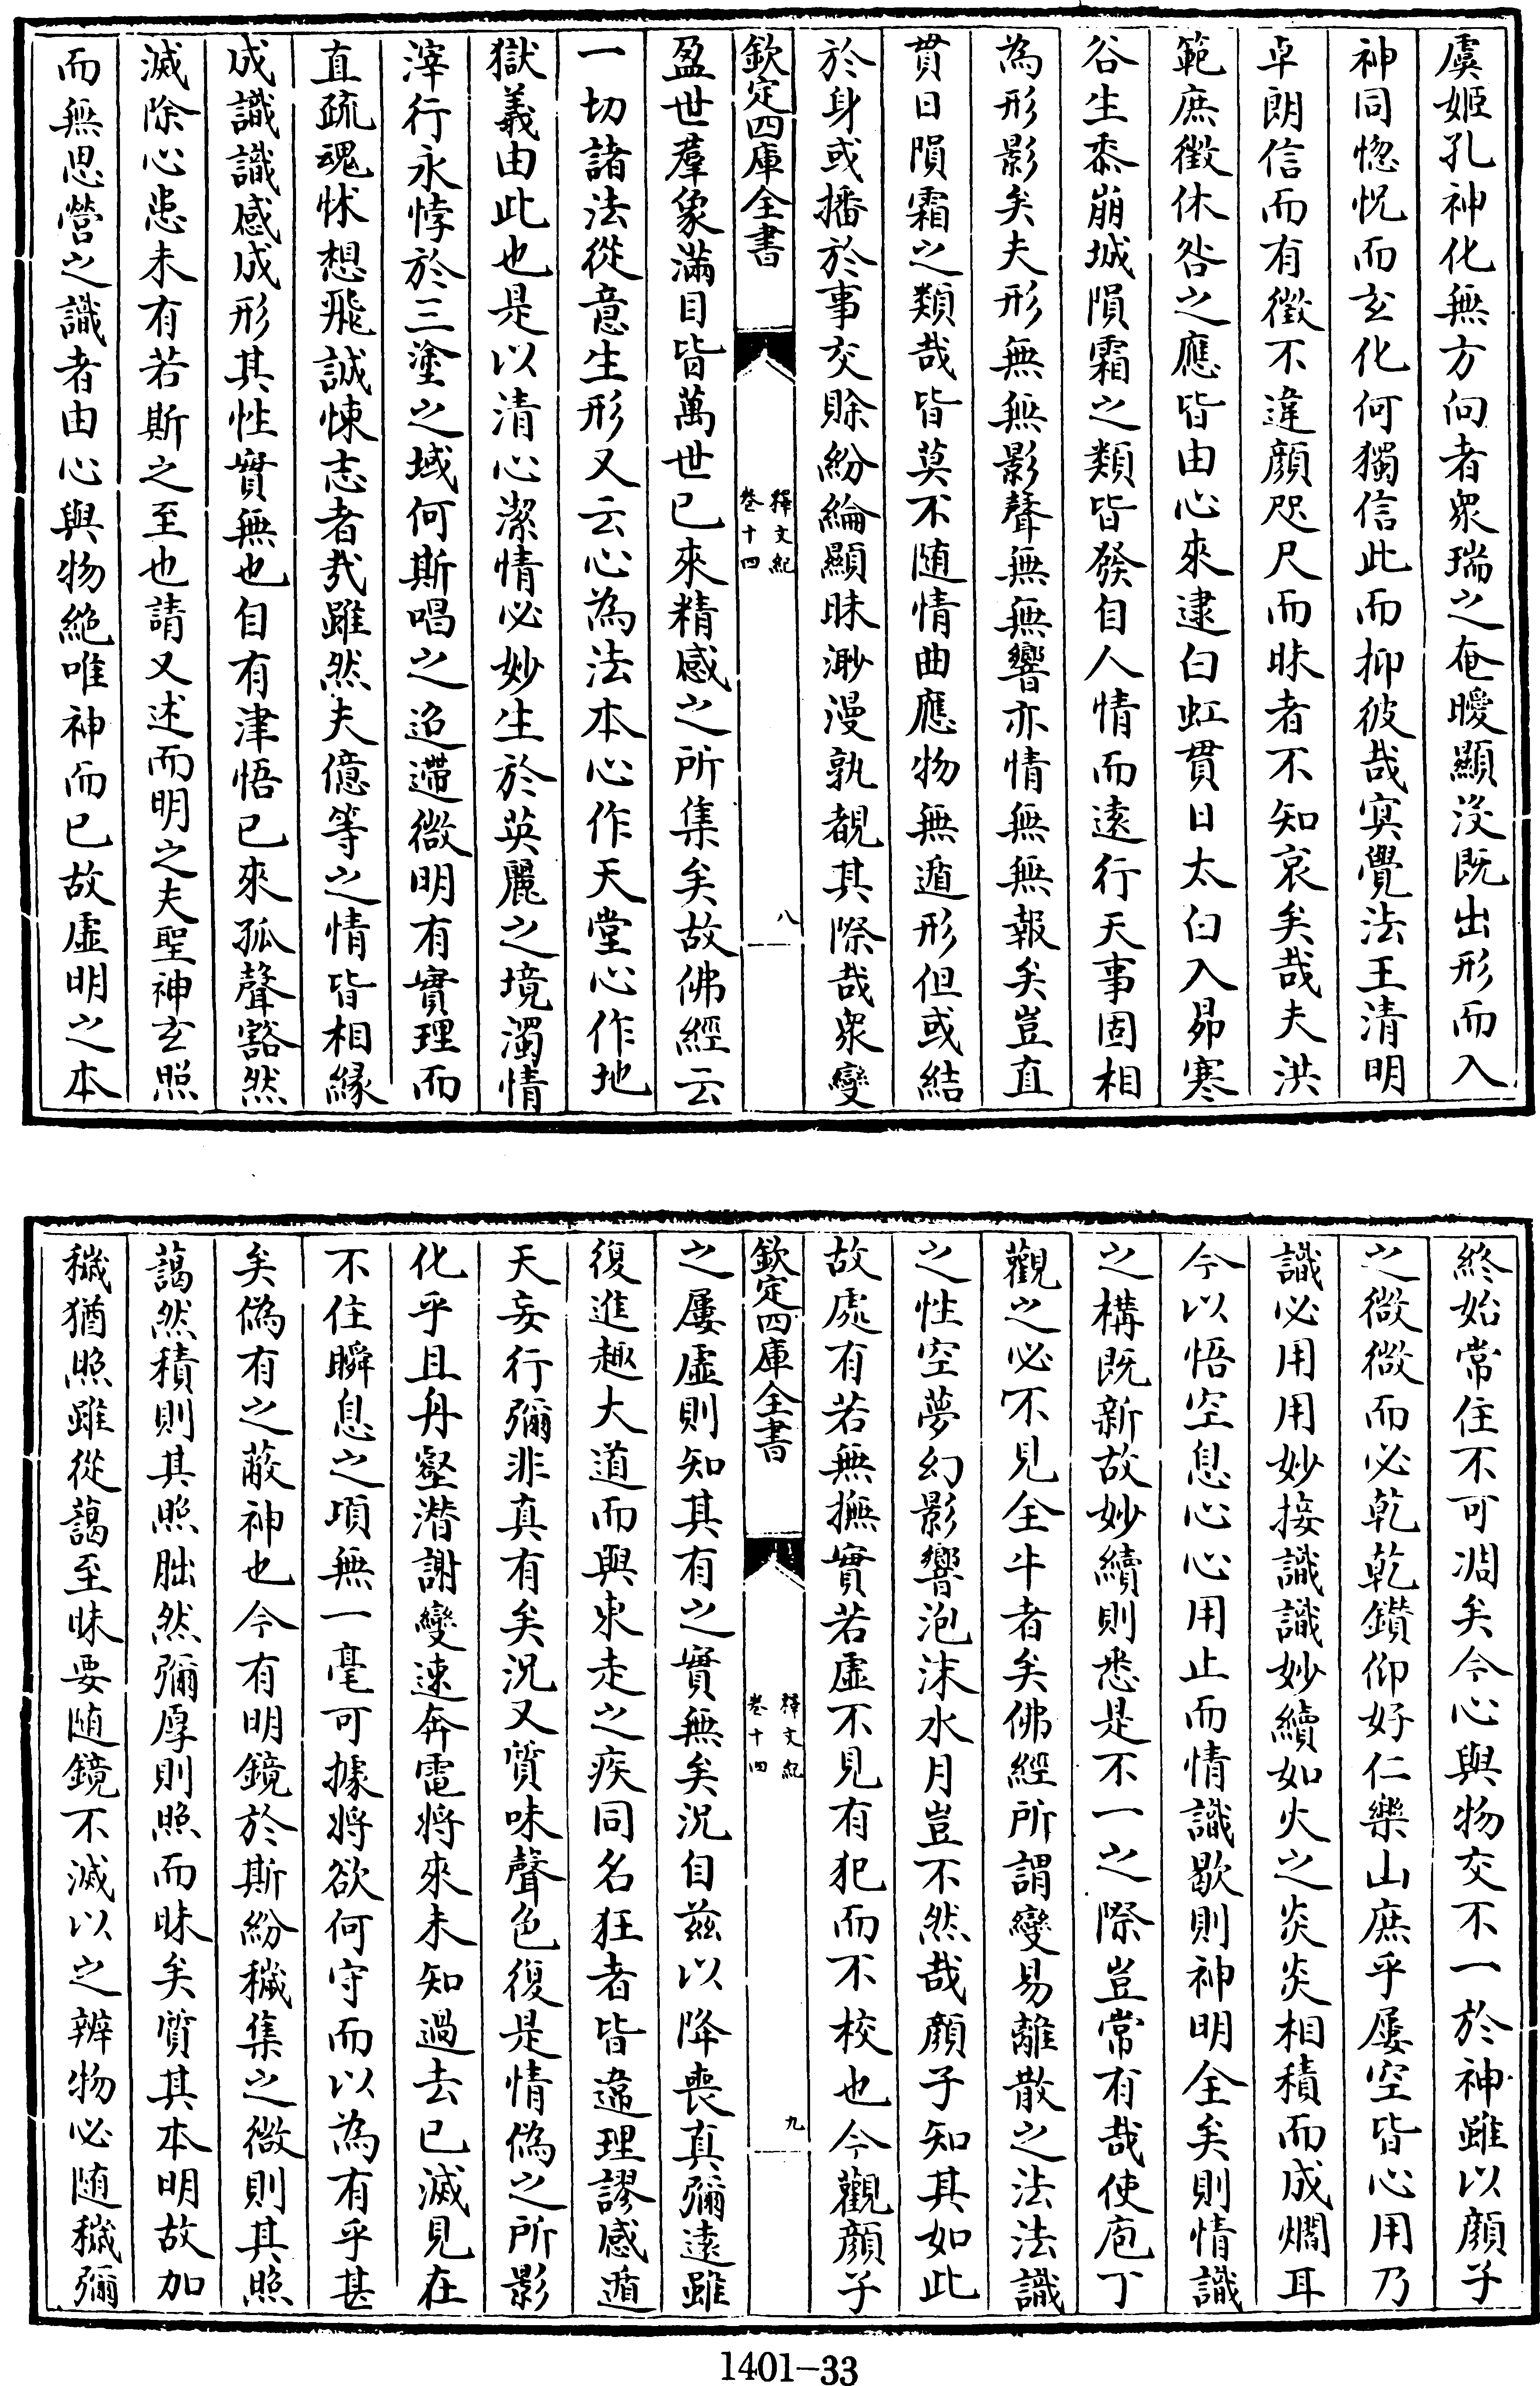 虞姬孔神化無方向者衆瑞之奄曖顯没既出形而入
神同惚怳而玄化何獨信此而抑彼哉冥覺法王清明
卓朗信而有徵不違顔咫尺而昧者不知哀矣哉夫洪
範庶徵休咎之應皆由心來逮白虹貫日太白入昴寒
谷生黍崩城隕霜之類皆發自人情而遠行天事固相
為形影矣夫形無無影聲無無響亦情無無報矣豈直
貫日隕霜之類哉皆莫不随情曲應物無遁形但或結
於身或播於事交賖紛綸顯昧渺漫孰覩其際哉衆變
欽定四庫全書
釋文紀
卷十四
八
盈世羣象滿目皆萬世已來精感之所集矣故佛經云
一切諸法從意生形又云心為法本心作天堂心作地
獄義由此也是以清心潔情必妙生於英麗之境濁情
滓行永悖於三塗之域何斯唱之迢遰微明有實理而
直疏魂怵想飛誠悚志者㢤雖然夫億等之情皆相緣
成識識感成形其性實無也自有津悟已來孤聲豁然
滅除心患未有若斯之至也請又述而明之夫聖神玄照
而無思營之識者由心與物絶唯神而已故虚明之本
終始常住不可凋矣今心與物交不一於神雖以顔子
之微微而必乾乾鑽仰好仁樂山庶乎屢空皆心用乃
識必用用妙接識識妙續如火之炎炎相積而成爛耳
今以悟空息心心用止而情識歇則神明全矣則情識
之構既新故妙續則悉是不一之際豈常有哉使庖丁
觀之必不見全牛者矣佛經所謂變易離散之法法識
之性空夢幻影響泡沫水月豈不然哉顔子知其如此
故處有若無撫實若虚不見有犯而不校也今觀顔子
欽定四庫全書
釋文紀
卷十四
九
之屢虚則知其有之實無矣況自兹以降喪真彌遠雖
復進趣大道而與東走之疾同名狂者皆違理謬感遁
天妄行彌非真有矣況又質味聲色復是情偽之所影
化乎且舟壑潛謝變速奔電將來未知過去已滅見在
不住瞬息之頃無一毫可據將欲何守而以為有乎甚
矣偽有之蔽神也今有明鏡於斯紛穢集之微則其照
藹然積則其照朏然彌厚則照而昧矣質其本明故加
穢猶照雖從藹至昧要随鏡不滅以之辨物必随穢彌
1401-33